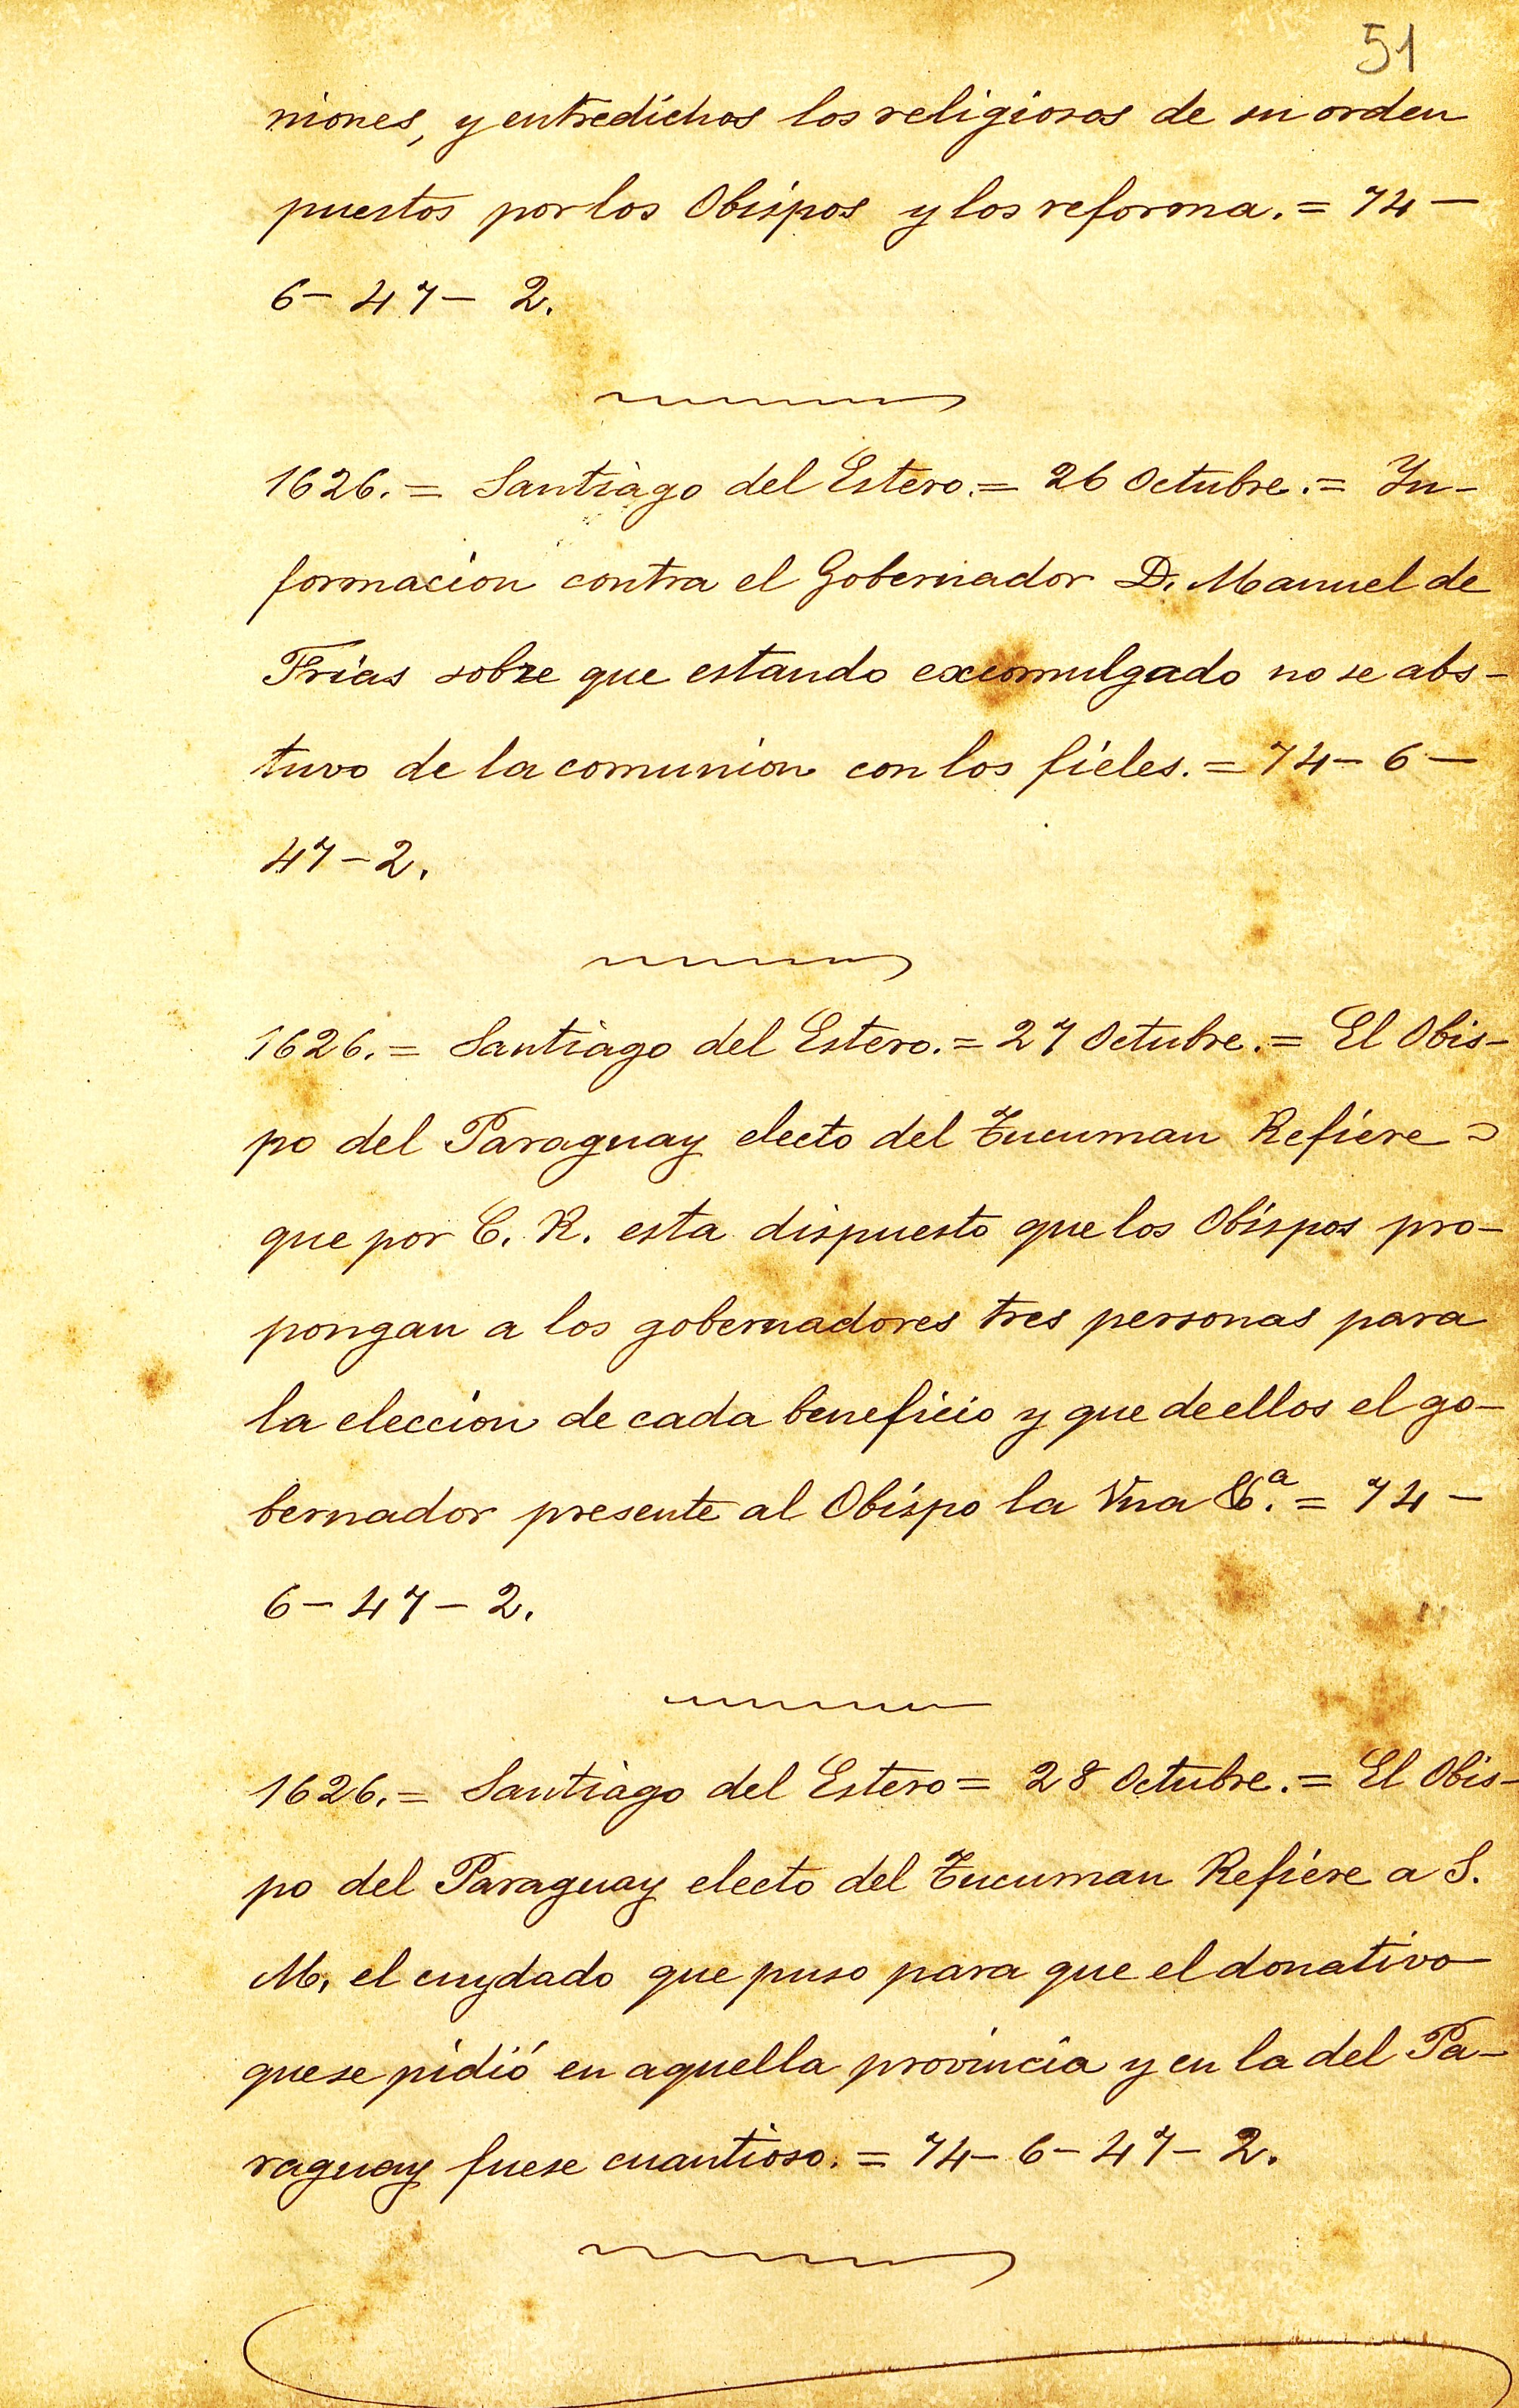 51
niones, y entredichos los religiosos de su orden
puestos por los Obispos y los reforma. = 74 —
6 — 47 — 2.
1626. = Santiago del Estero. = 26 Octubre. = Yn-
formacion contra el Gobernador D. Manuel de
Frias sobre que estando excomulgado no se abs-
tuvo de la comunion con los fieles. = 74 — 6 —
47 — 2.
1626. = Santiago del Estero. = 27 Octubre. = El Obis-
po del Paraguay electo del Tucuman Refiere =
que por C. R. esta dispuesto que los Obispos pro-
pongan a los gobernadores tres personas para
la eleccion de cada beneficio y que de ellos el go-
bernador presente al Obispo la Vna &.ª = 74 —
6 — 47 — 2.
1626. = Santiago del Estero = 28 Octubre. = El Obis-
po del Paraguay electo del Tucuman Refiere a S.
M. el cuydado que puso para que el donativo
que se pidió en aquella provincia y en la del Pa-
raguay fuese cuantioso. = 74 — 6 — 47 — 2.